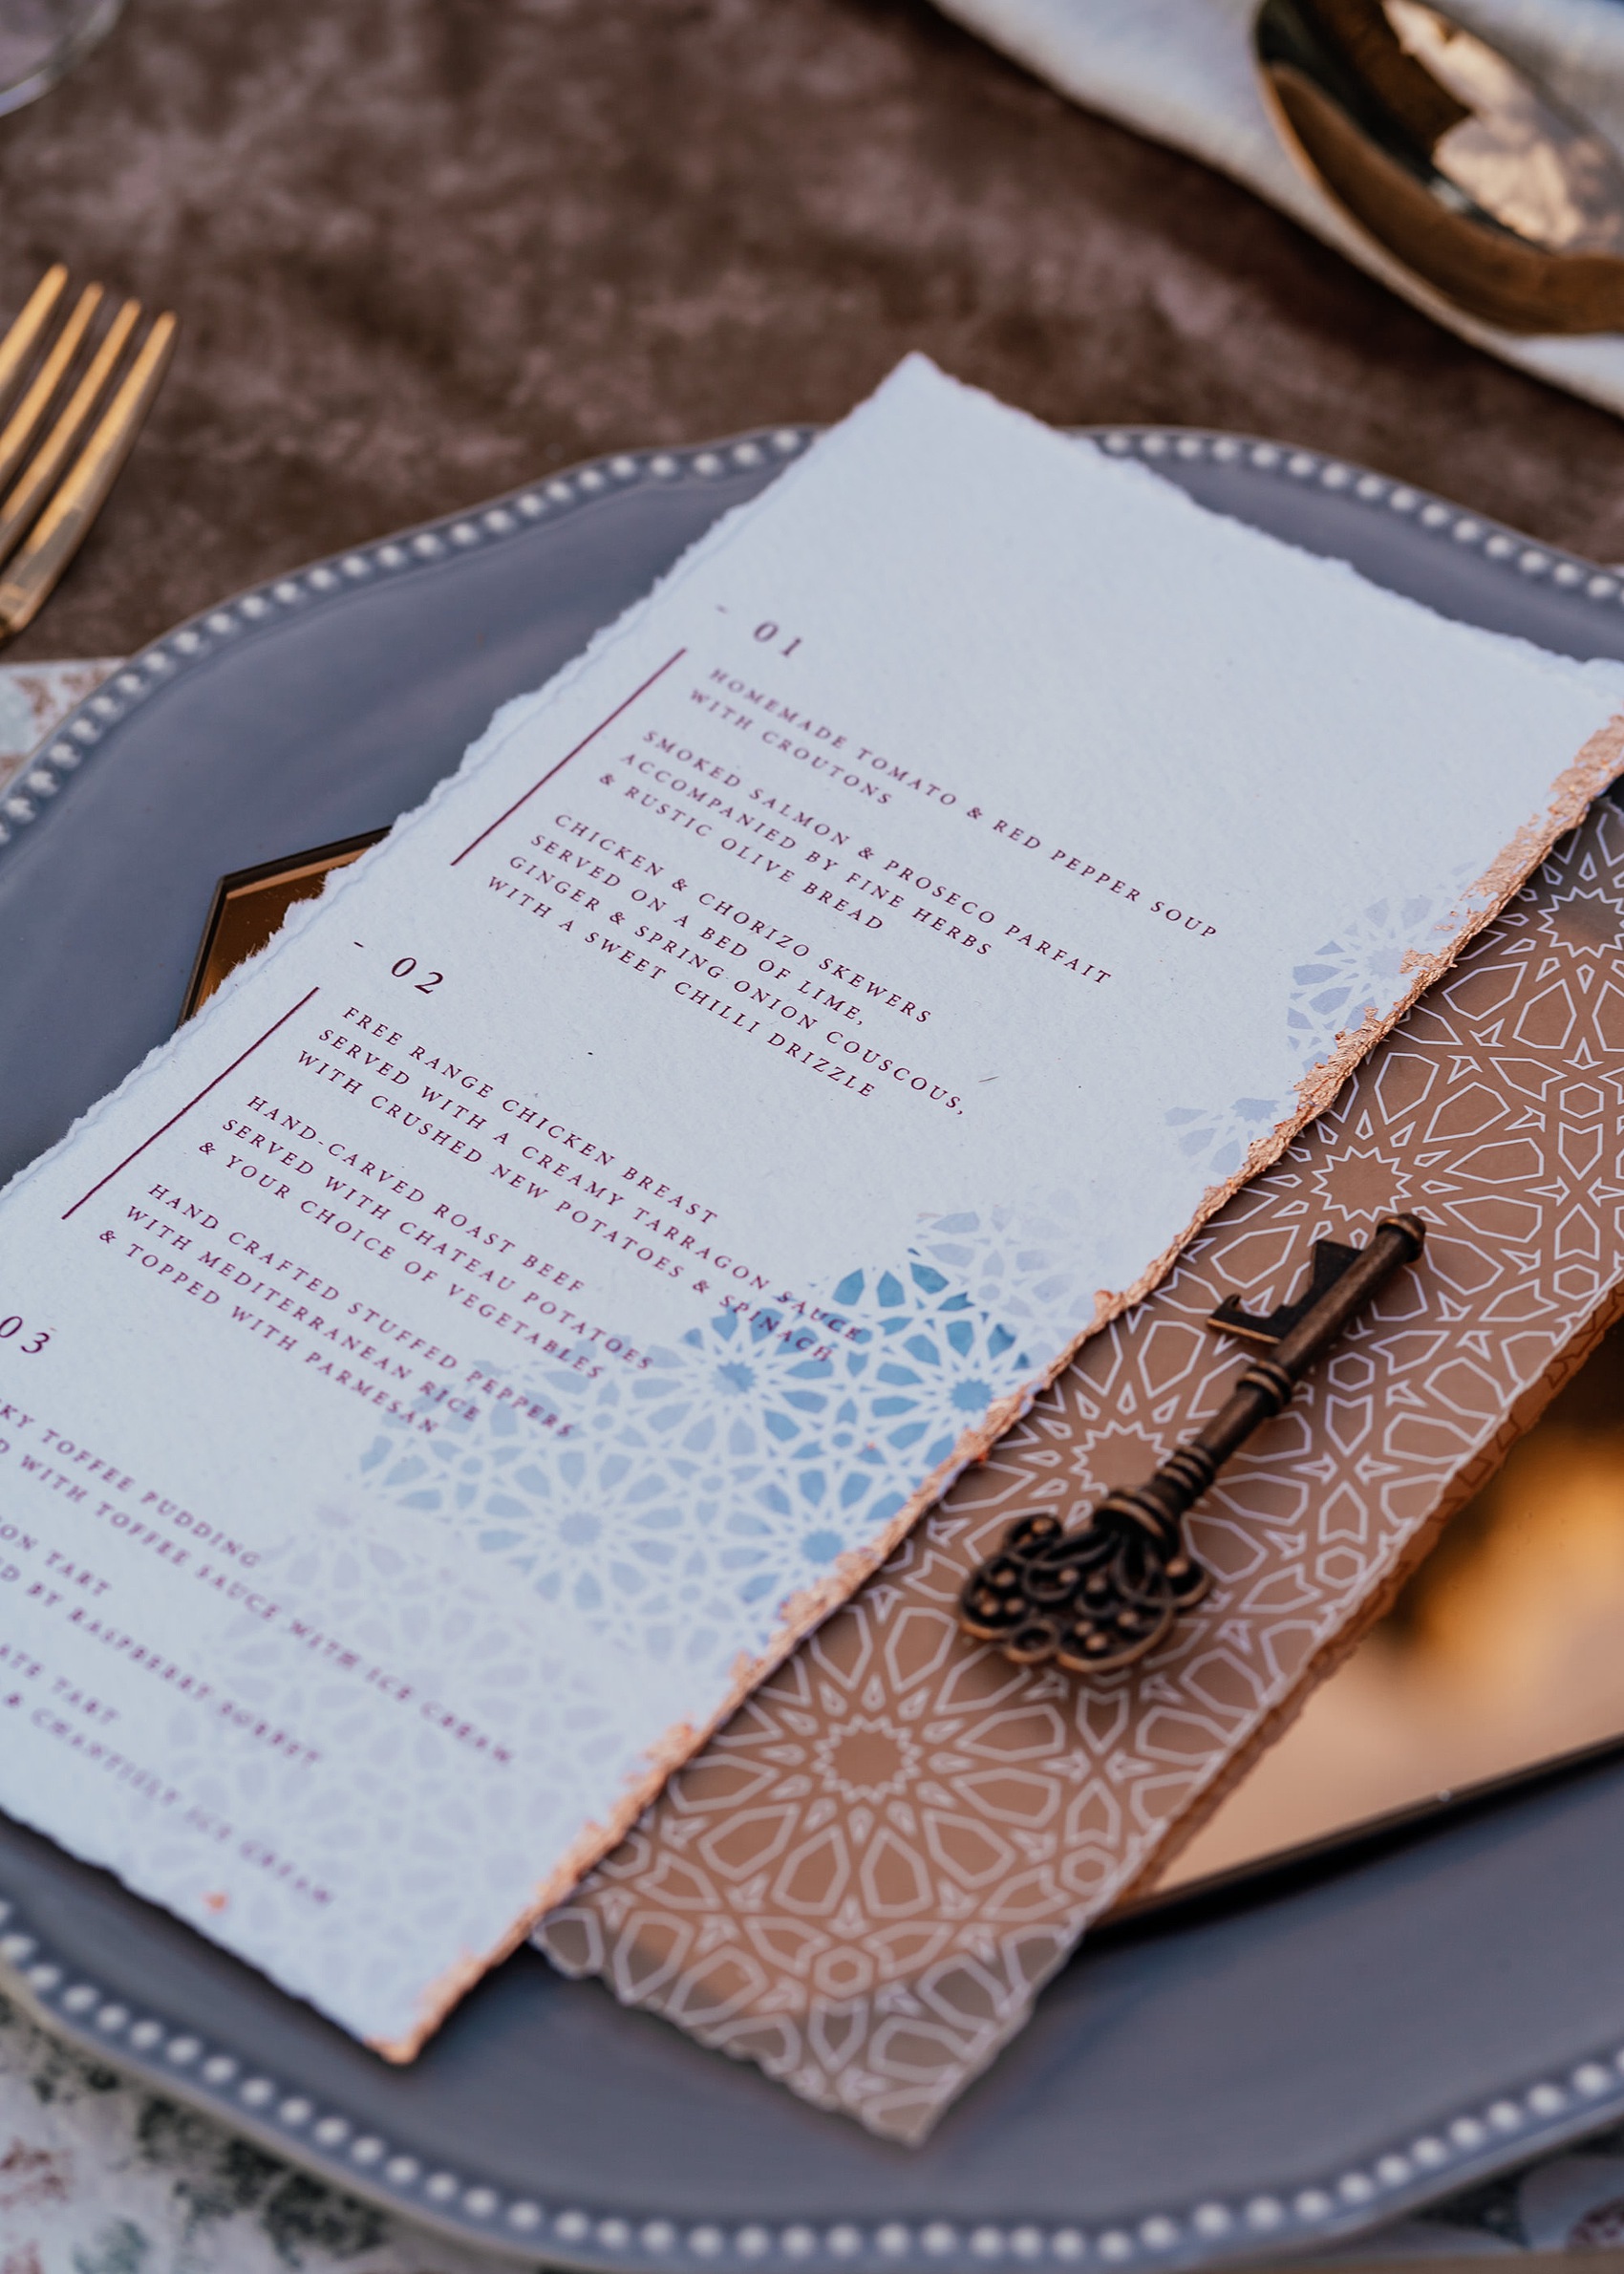 - 01
HOMEMADE TOMATO & RED PEPPER SOUP
WITH CROUTONS
SMOKED SALMON & PROSECO PARFAIT
ACCOMPANIED BY FINE HERBS
& RUSTIC OLIVE BREAD
CHICKEN & CHORIZO SKEWERS
SERVED ON A BED OF LIME,
GINGER & SPRING ONION COUSCOUS,
WITH A SWEET CHILLI DRIZZLE
- 02
FREE RANGE CHICKEN BREAST
SERVED WITH A CREAMY TARRAGON SAUCE
WITH CRUSHED NEW POTATOES & SPINACH
HAND-CARVED ROAST BEEF
SERVED WITH CHATEAU POTATOES
& YOUR CHOICE OF VEGETABLES
HAND CRAFTED STUFFED PEPPERS
WITH MEDITERRANEAN RICE
& TOPPED WITH PARMESAN
03
KY TOFFEE PUDDING
D WITH TOFFEE SAUCE WITH ICE CREAM
ON TART
D BY RASPBERRY SORBET
ATE TART
& CHANTILLY ICE CREAM